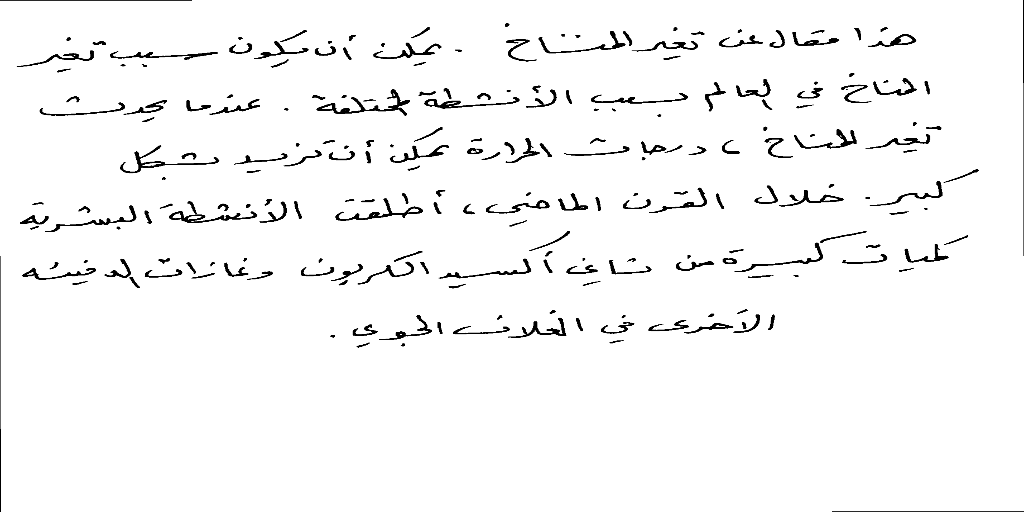 هذا مقال عن تغير المناخ . يمكن أن يكون سبب تغير
المناخ في العالم بسبب الأنشطة المختلفة . عندما يحدث
تغير المناخ ، درجات الحرارة يمكن أن تزيد بشكل
كبير . خلال القرن الماضي ، أطلقت الأنشطة البشرية
كميات كبيرة من ثاني أكسيد الكربون وغازات الدفيئة
الأخرى في الغلاف الجوي .